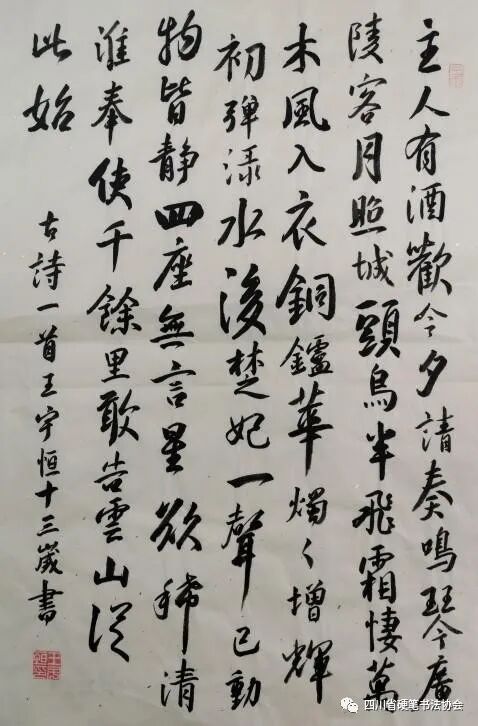 主人有酒歡今夕請奏鳴琴廣
陵客月照城頭烏半飛霜悽萬
木風入衣銅鑪華燭々增輝
初彈渌水後楚妃一聲已動
物皆靜四座無言星欲稀清
淮奉使千餘里敢告雲山從
此始
古詩一首王宇恒十三歲書
四川省硬笔书法协会